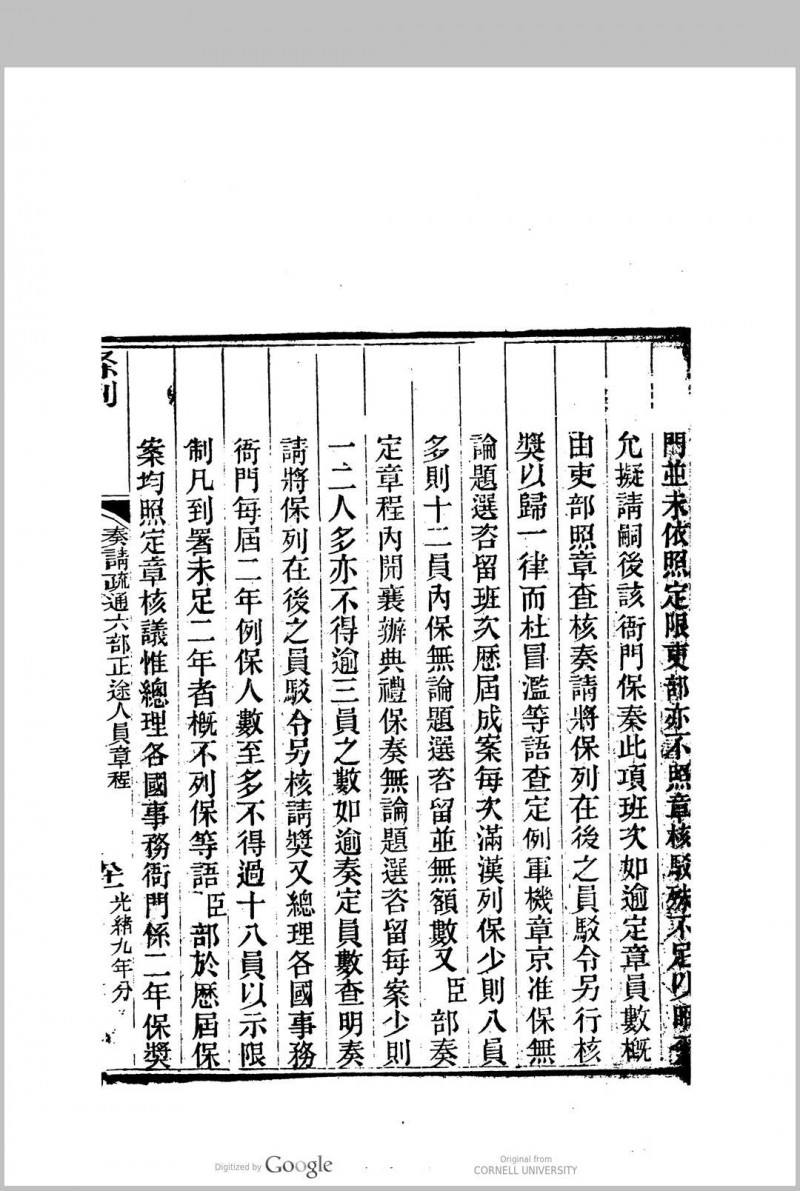 門並未依照定限吏部亦不照章核駁殊不足以昭
允擬請嗣後該衙門保奏此項班次如逾定章員數概
由吏部照章查核奏請將保列在後之員駁令另行核
獎以歸一律而杜冒濫等語查定例軍機章京准保無
論題選咨留班次歷屆成案每次滿漢列保少則八員
多則十二員內保無論題選咨留並無額數又臣部奏
定章程內開襄辦典禮保奏無論題選咨留每案少則
一二人多亦不得逾三員之數如逾奏定員數查明奏
請將保列在後之員駁令另核請獎又總理各國事務
衙門每屆二年例保人數至多不得過十八員以示限
制凡到署未足二年者概不列保等語臣部於歷屆保
案均照定章核議惟總理各國事務衙門係二年保獎
條例
奏請疏通六部正途人員章程
光緒九年分
Digitized by Google
Original from
CORNELL UNIVERSITY